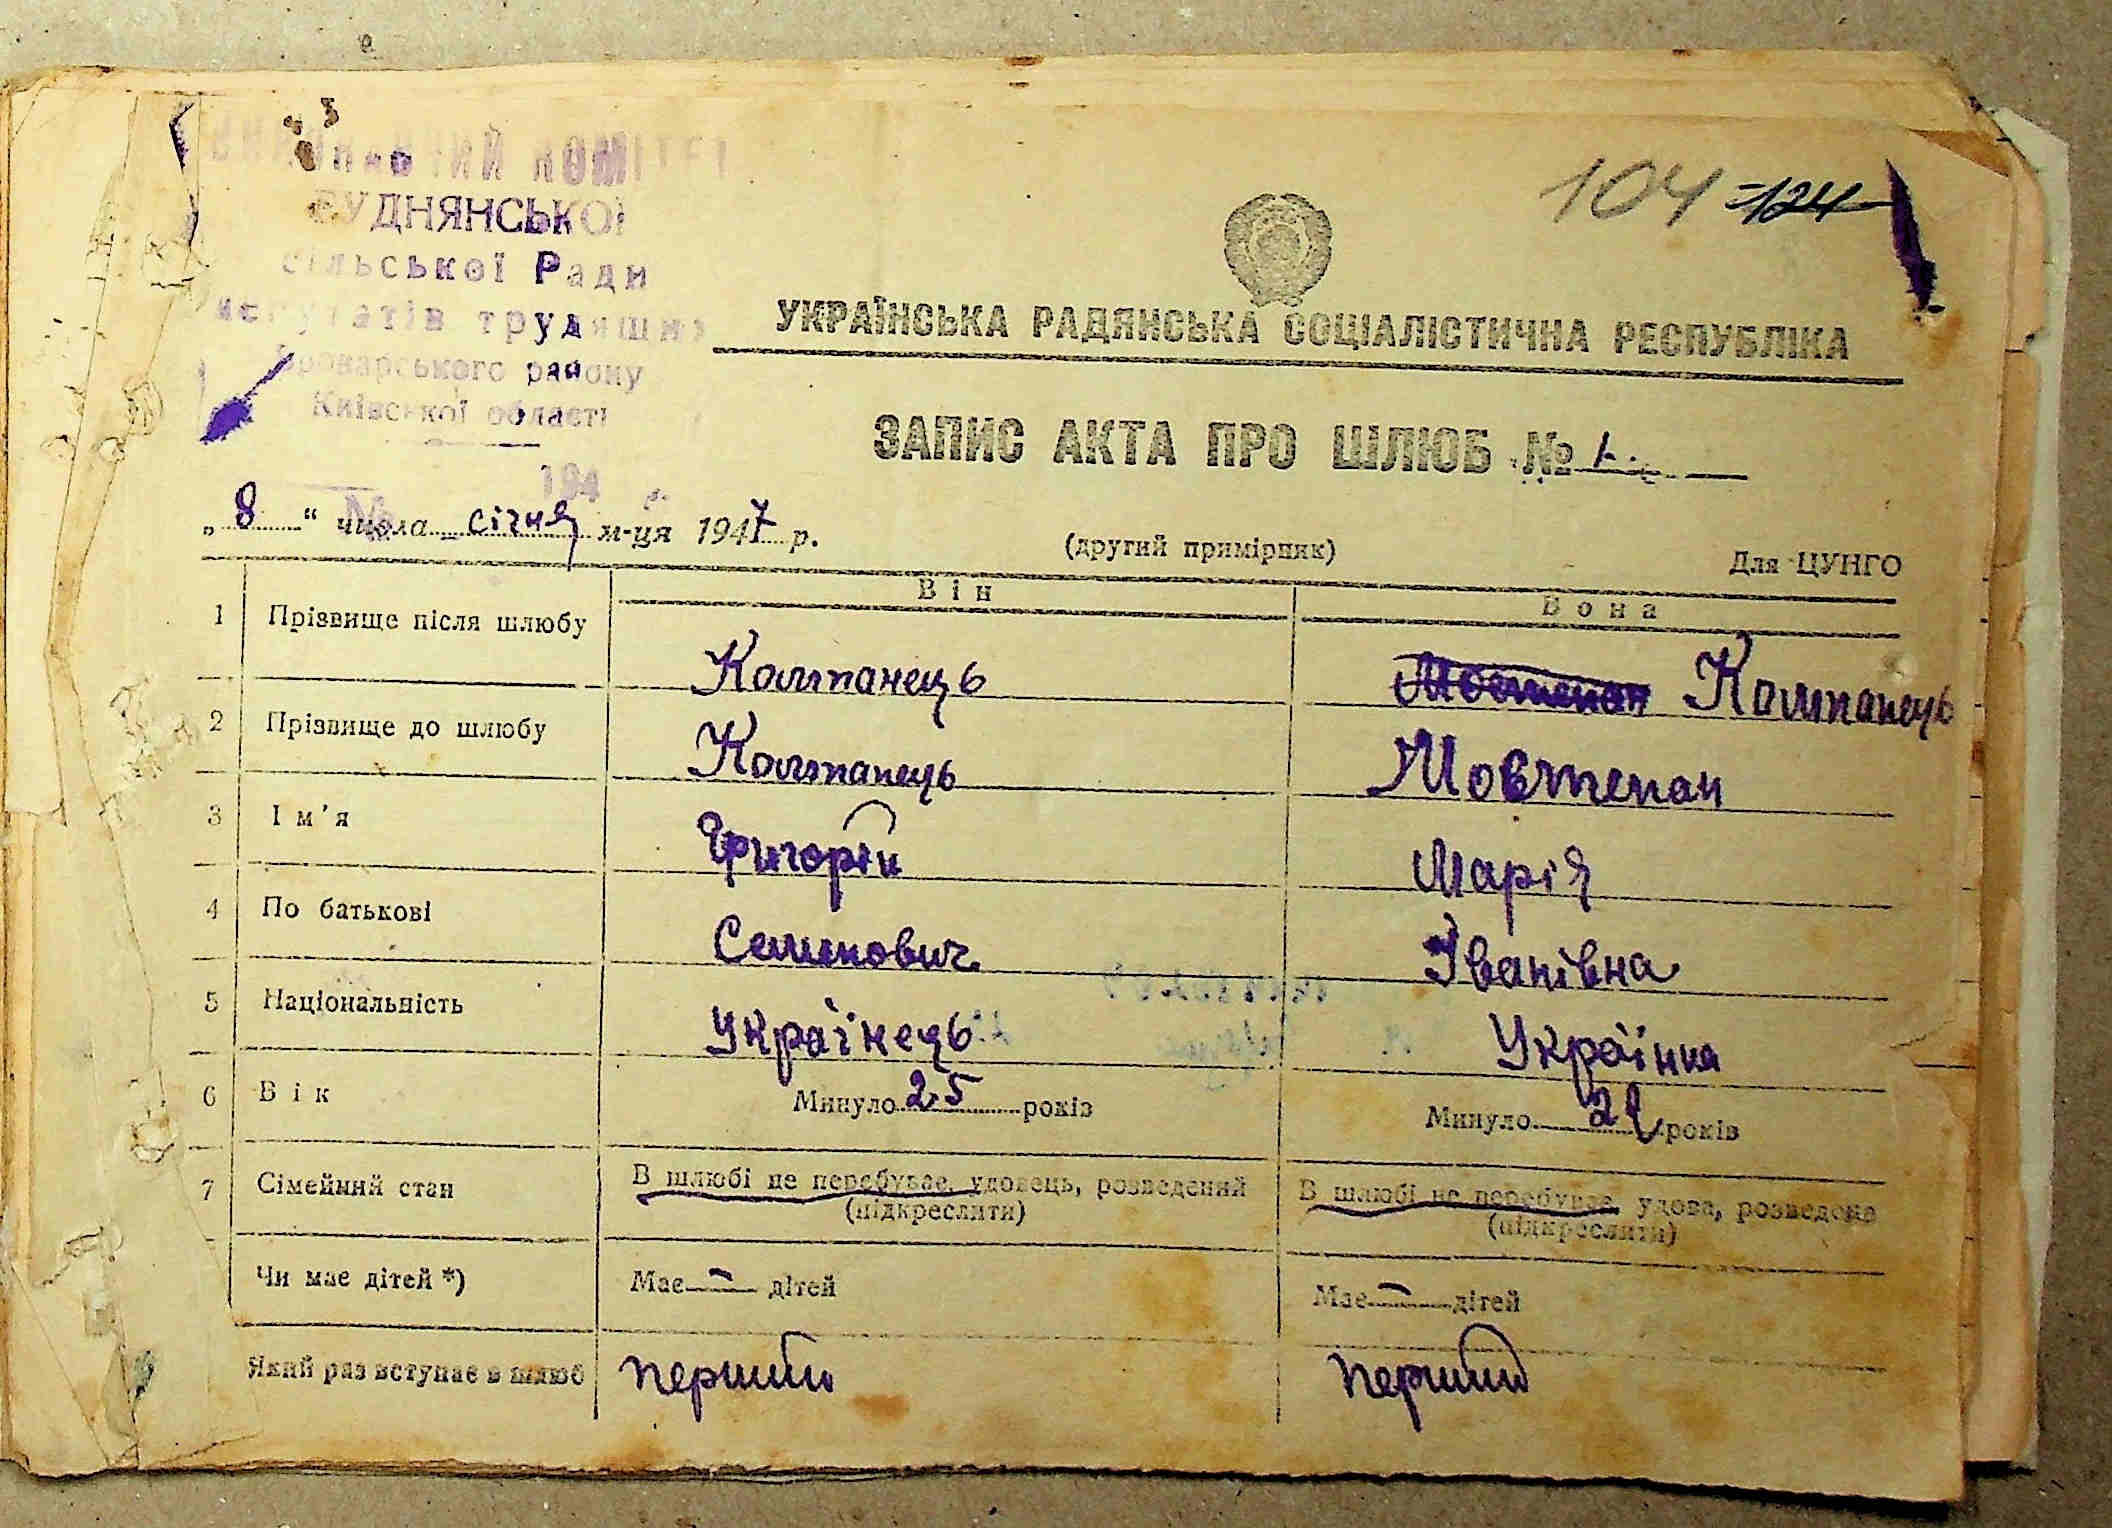 104 124
ВИКОНАВЧИЙ КОМІТЕТ
РУДНЯНСЬКОЇ
сільської Ради
депутатів трудящих
Броварського району
Київської області
194
№
УКРАЇНСЬКА РАДЯНСЬКА СОЦІАЛІСТИЧНА РЕСПУБЛІКА
ЗАПИС АКТА ПРО ШЛЮБ № 1.
„ 8 “ числа січня м-ця 1947 р.
(другий примірник) Для ЦУНГО
Він Вона
1 Прізвище після шлюбу Колтанець Колтанець
2 Прізвище до шлюбу Колтанець Жовтепан
3 Ім’я Григорій Марія
4 По батькові Семенович Іванівна
5 Національність Українець Українка
6 Вік Минуло 25 років Минуло 21 років
7 Сімейний стан В шлюбі не перебуває, удовець, розведений В шлюбі не перебуває, удова, розведена
(підкреслити) (підкреслити)
Чи має дітей *) Має – дітей Має – дітей
Який раз вступає в шлюб перший перший